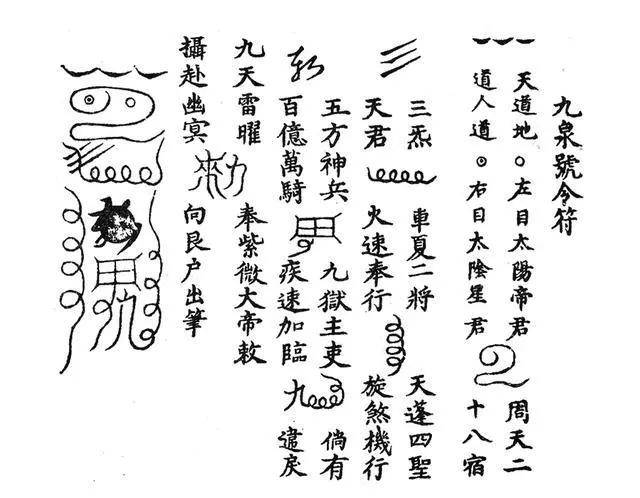 九泉號令符
天道地
道人道
左目太陽帝君
右目太陰星君
周天二
十八宿
三炁
天君
車夏二將
火速奉行
天蓬四聖
旋煞機行
五方神兵
百億萬騎
九獄主吏
疾速加臨
九
倘有
違戾
九天雷曜
奉紫微大帝敕
攝赴幽冥
向艮户出筆